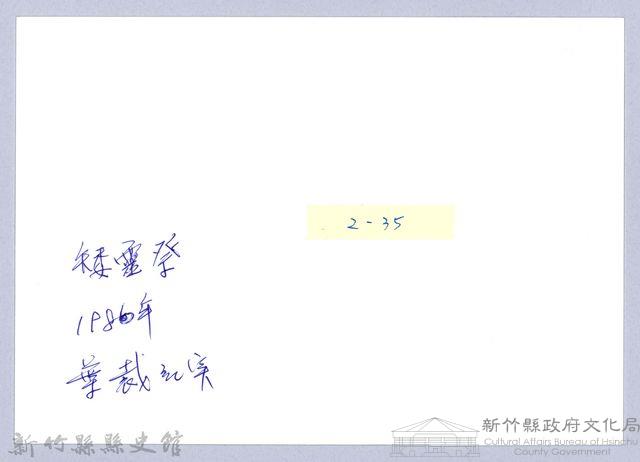 2-35
矮靈祭
1986年
葉裁記实
新竹縣縣史館
新竹縣政府文化局
Cultural Affairs Bureau of Hsinchu
County Government